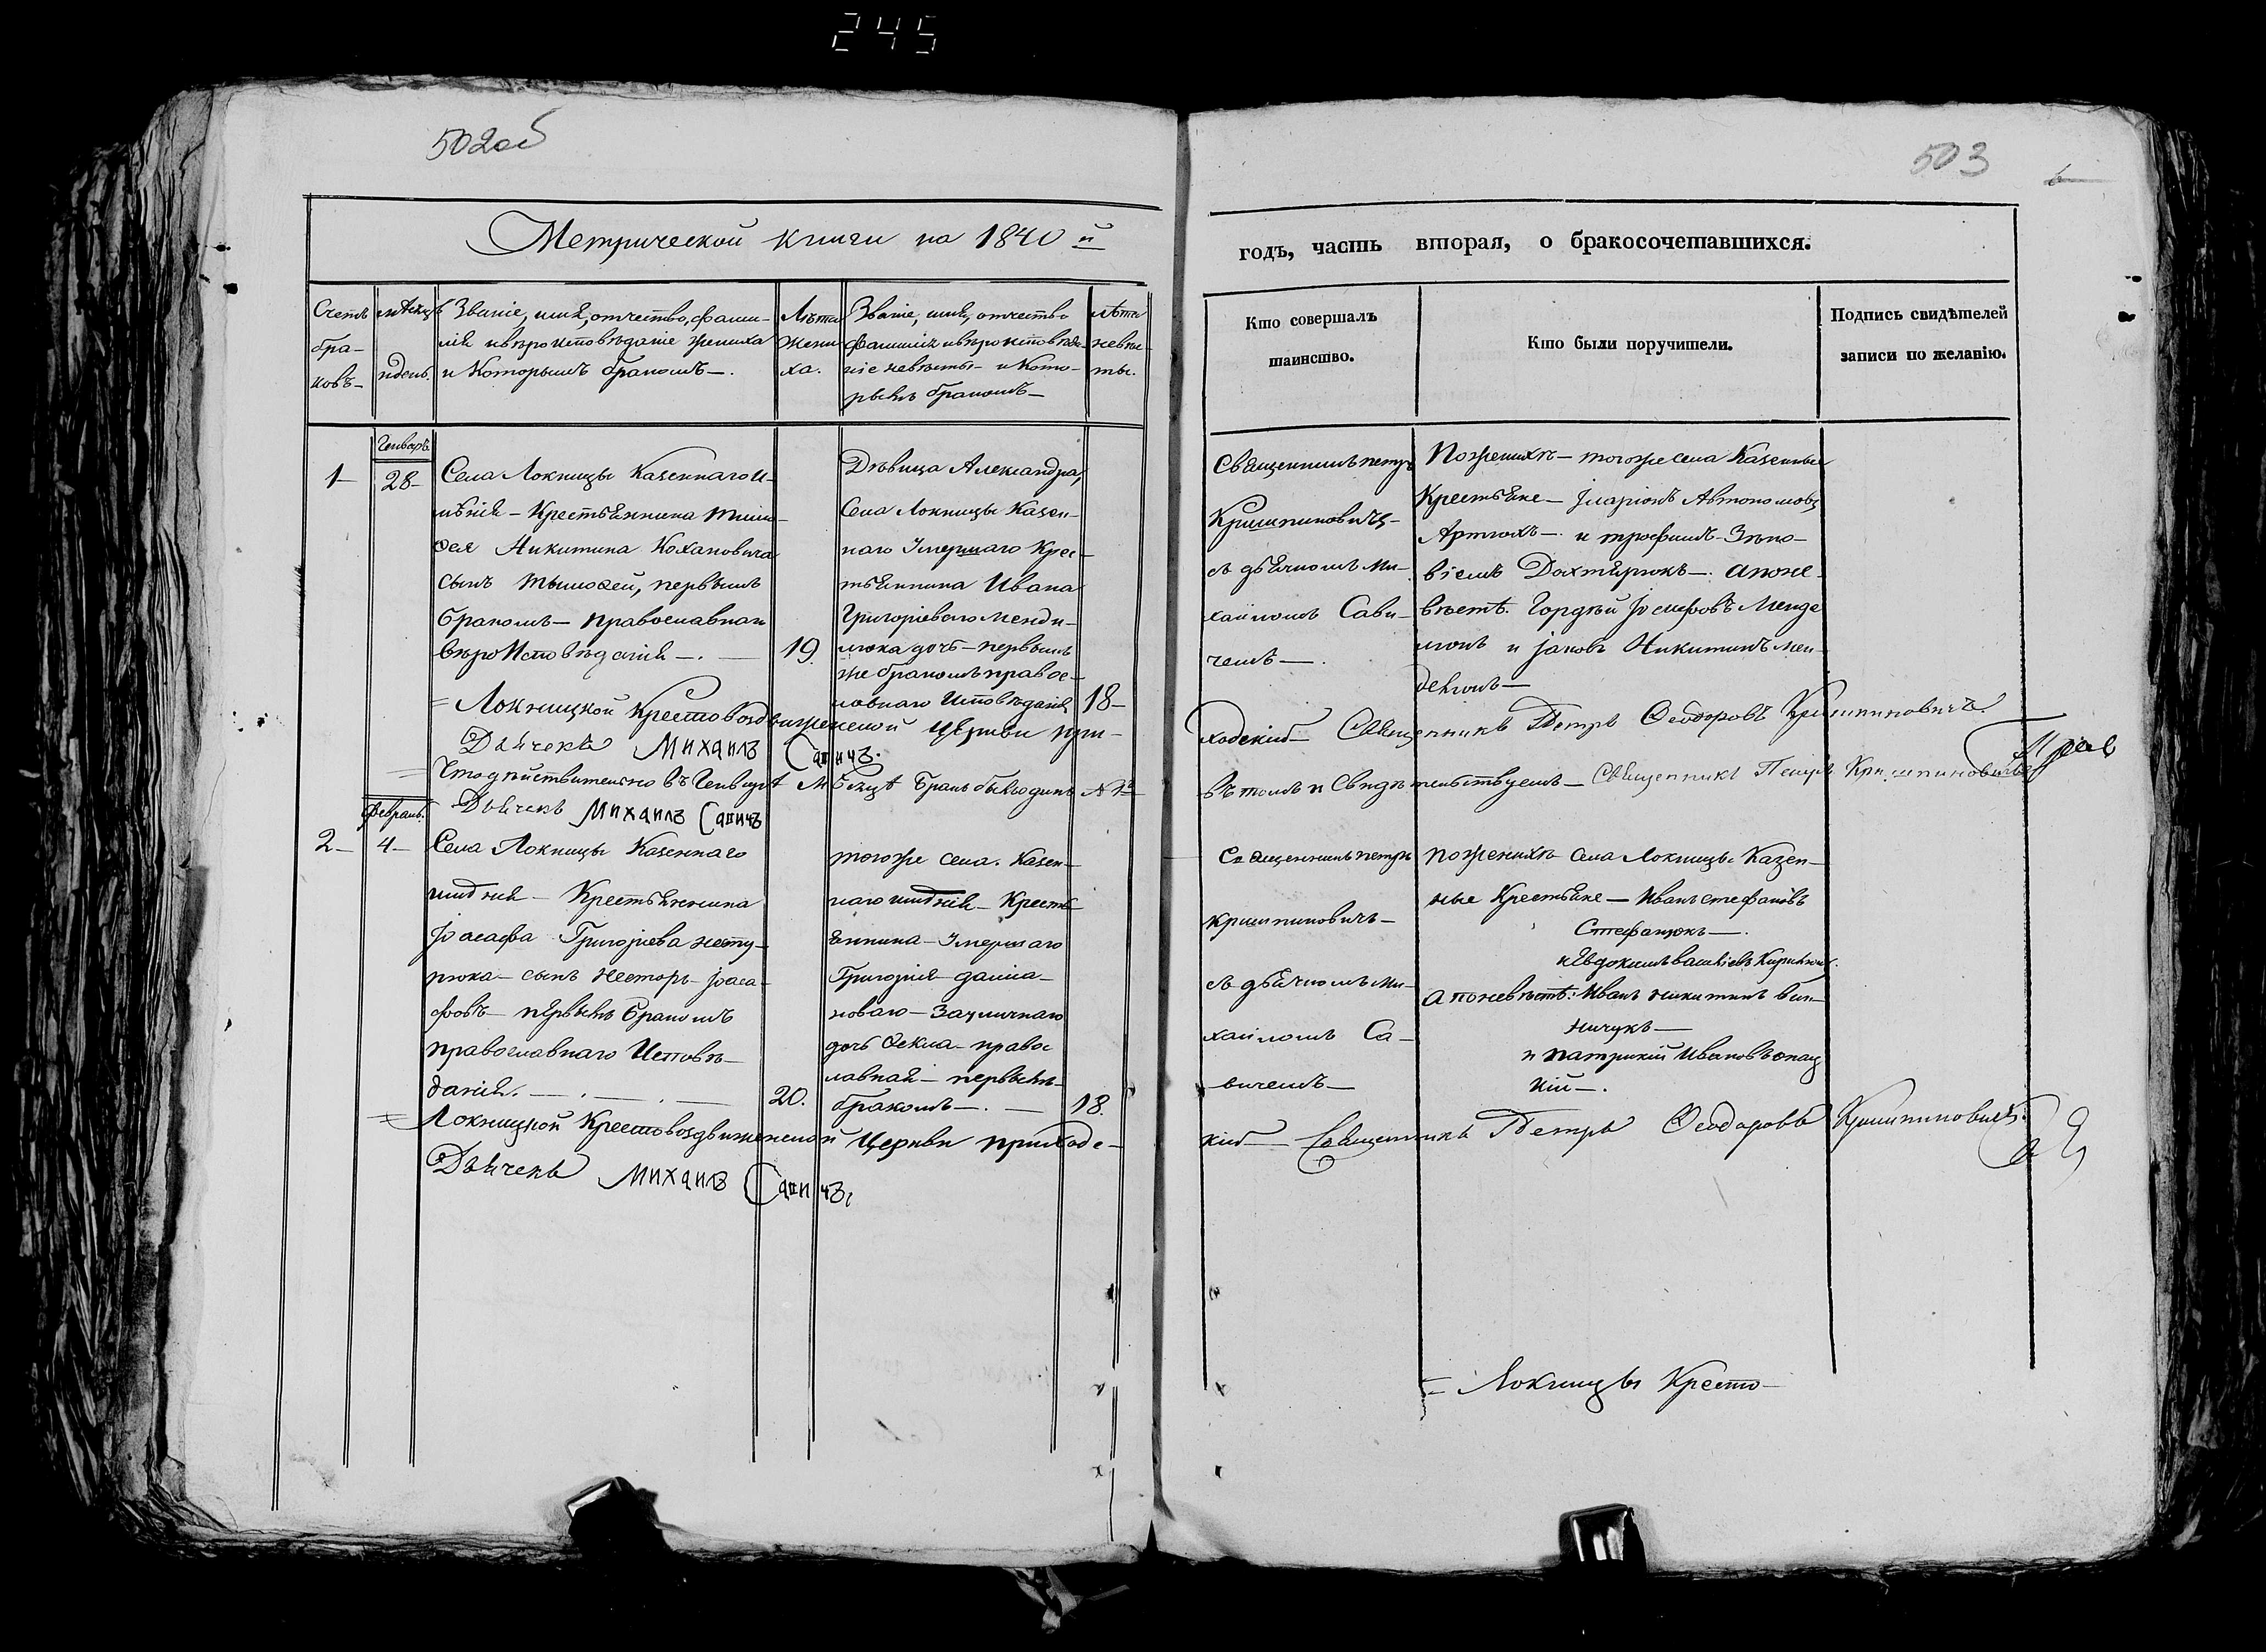 245
502об
503
Метрической книги на 1840й
годъ, часть вторая, о бракосочетавшихся.
Счетъ бра-ковъ-
мѣсяцъ и день.
Званіе, имя, отчество, фами-
лія и вѣроисповѣданіе жениха
и которымъ бракомъ—.
Лѣта
жени
ха.
Званіе, имя, отчество
фамилія и вѣроисповѣда-
ніе невѣсты- и кото-
рымъ бракомъ—
лѣта
невѣс-
ты.
Кто совершалъ
таинство.
Кто были поручители.
Подпись свидѣтелей
записи по желанію.
Генварь
1-
28-
Села Локницы Казеннаго и-
мѣнія - Крестьянина Тимо-
ѳея Никитина Кохановича
сынъ Тымоѳей, первымъ
бракомъ— православнаго
вѣроисповѣданія —. —
19.
Дѣвица Александра,
Села Локницы Казен-
наго Умершаго Крес-
тьянина Ивана
Григоріеваго Менди-
люка дочь - первымъ
же бракомъ правос-
лавнаго исповѣданія
18-
Священникъ петръ
Кришпиновичъ-
съ дьячкомъ Ми-
хаиломъ Сави-
чемъ—.
По женихѣ — тогоже села Казенные
Крестьяне — Іларіонъ Автономовъ
Артюхъ—. и трофимъ Зѣно-
віевъ Дахтярюкъ—. а по не-
вѣстѣ. Гордѣй Іосифовъ Менде
люкъ и Іаковъ Никитинъ Мен-
делюкъ—
= Локницкой Крестовоздвиженской Церкви при-
ходскій— Священникъ Петръ Ѳеодоровъ Кришпиновичъ.
Дьячекъ Михаилъ Савичъ.
= Что дѣйствительно въ Генварѣ Мѣсяцѣ Бракъ былъ одинъ №
въ томъ и Свидѣтельствуемъ — Священникъ Петръ Кришпиновичъ
Дьячекъ Михаилъ Савичъ
Февраль.
2-
4-
Села Локницы Казеннаго
имѣнія — Крестьянина
Іоасафа Григоріева
сынъ Несторъ Іоаса-
фовъ — первымъ бракомъ
православнаго Исповѣ-
данія. —. —. —
20.
тогоже села. Казен-
наго имѣнія — Кресть
янина — Умершаго
Григорія
дочь Ѳекла - правос
лавная — первымъ
бракомъ —. —
18.
Священникъ петръ
Кришпиновичъ—
съ дьячкомъ Ми-
хаиломъ Са-
вичемъ—
По женихѣ села Локницы Казен-
ные Крестьяне — Иванъ стефановъ
Стефанюкъ—.
и Евдокимъ
а по невѣстѣ: Иванъ никитинъ
ничукъ—
и патрикій Ивановъ
кій—.
= Локницкой Крестовоздвиженской Церкви приходс-
кій— Священникъ Петръ Ѳеодоровъ Кришпиновичъ.
Дьячекъ Михаилъ Савичъ
= Локницы Кресто-